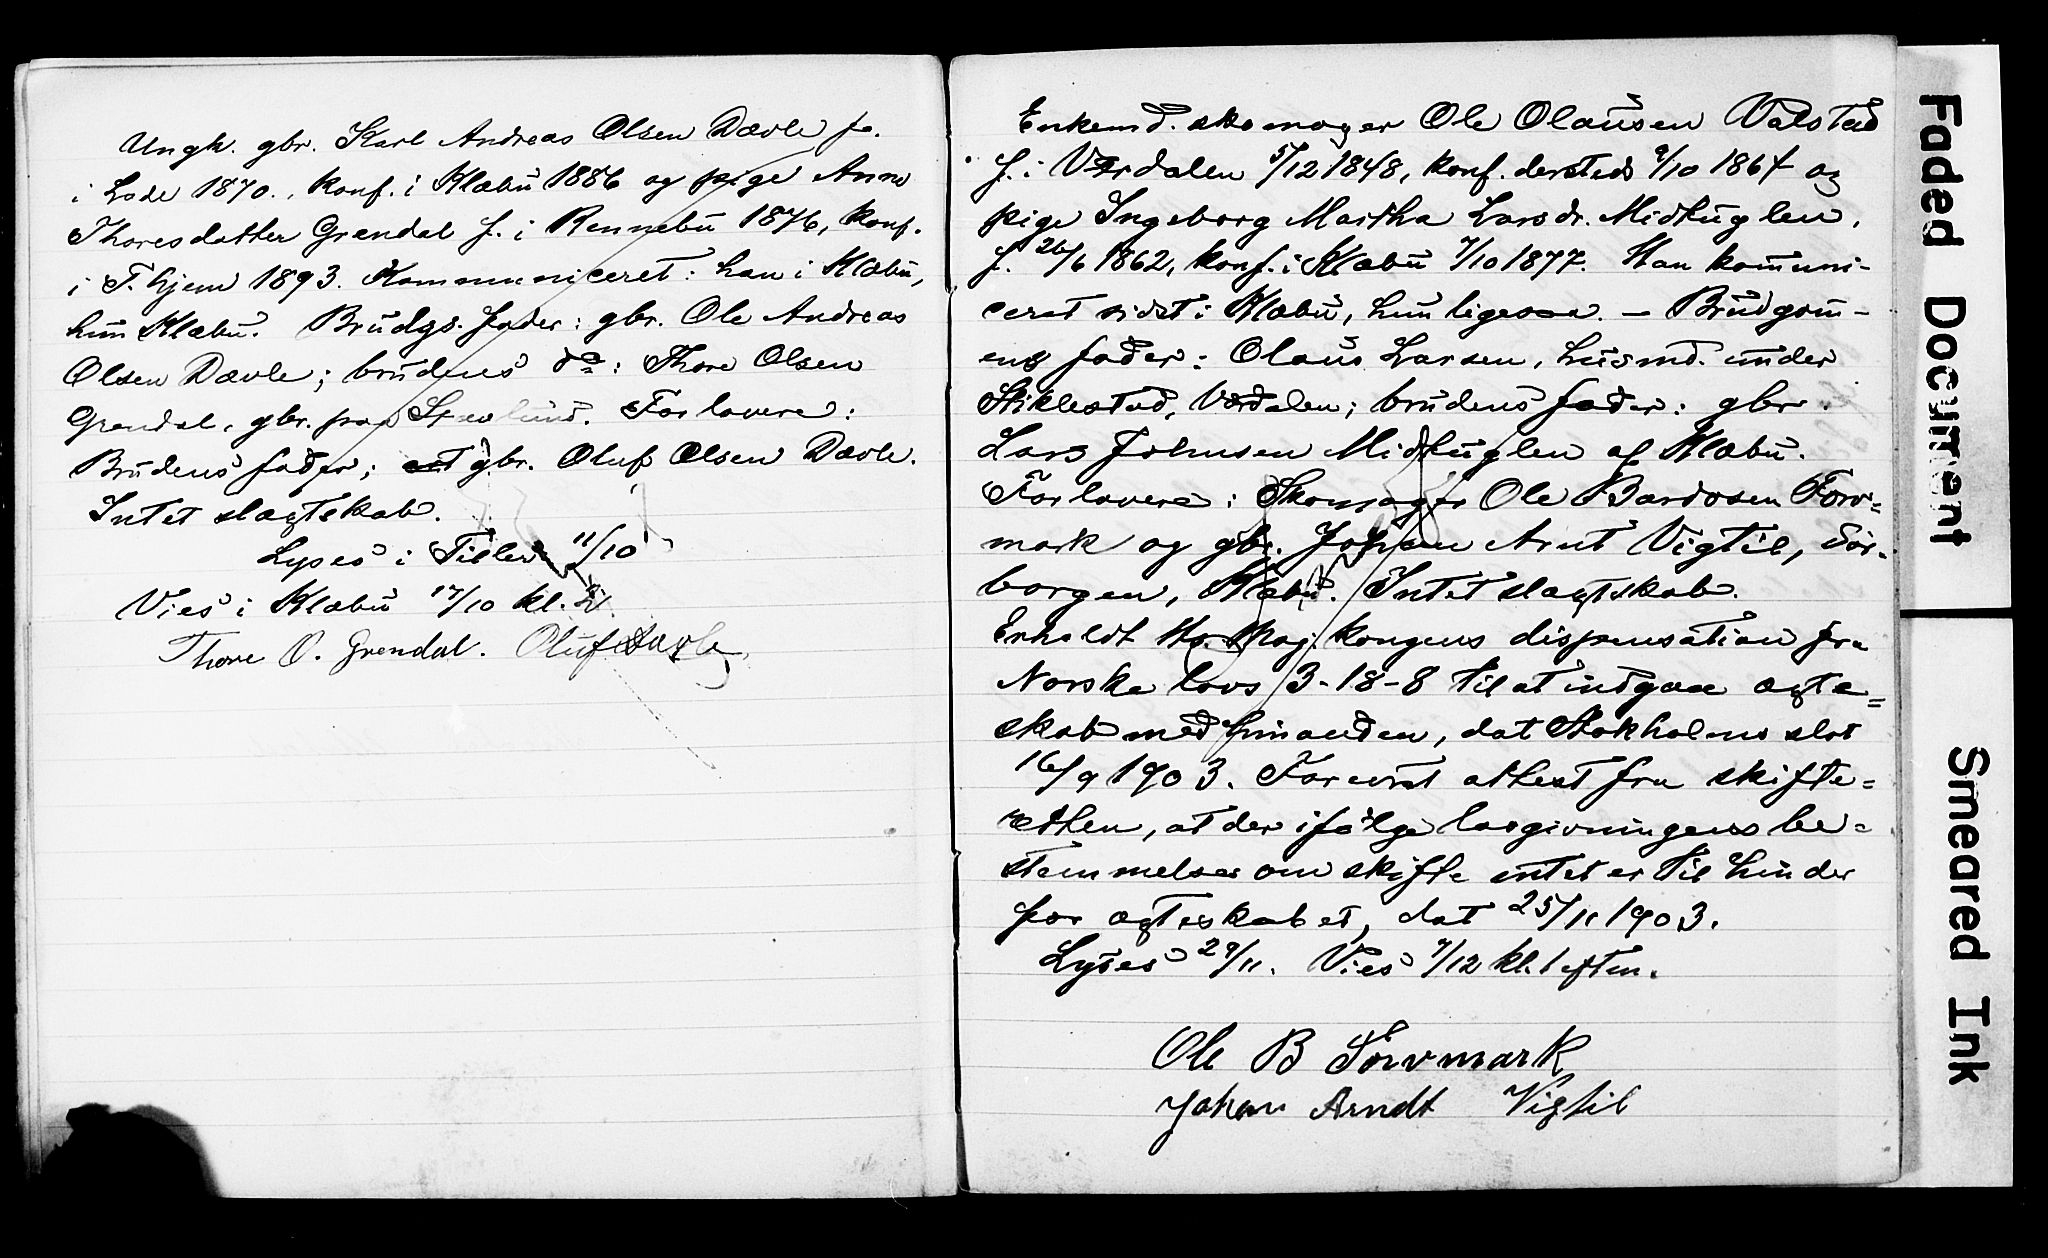 Ungk. gbr. Karl Andreas Olsen Dævle f.
i Lade 1870., konf. i Klæbu 1886 og pige Anne
Thoresdatter Grendal f. i Rennebu 1876, konf.
i T.hjem 1893. Kommuniceret: han i Klæbu,
hun Klæbu. Brudgs. fader: gbr. Ole Andreas
Olsen Dævle; brudens do: Thore Olsen
Grendal, gbr. paa. Forlovere:
Brudens fader; gbr. Oluf Olsen Dævle.
Intet slægtskab.
Lyses i Tiller 11/10
Vies i Klæbu 17/10 kl. 2.
Thore O. Grendal. Oluf Dævle
Enkemd. skomager Ole Olausen Valstad
f. i Værdalen 5/12 1848, konf. dersteds 9/10 1864 og
pige Ingeborg Martha Larsdr. Midtuglen,
f. 26/6 1862, konf. i Klæbu 7/10 1877. Han kommuni-
ceret sidst i Klæbu, hun ligesaa. — Brudgom-
ens fader: Olaus Larsen, husmd. under
Stiklestad, Værdalen; brudens fader: gbr.
Lars Johnsen Midtuglen af Klæbu.
Forlovere: Skomager Ole Bardosen Forv=
mark og gbr. Johan Arnt Vigtil, Sør-
borgen, Klæbu. Intet slægtskab.
Erholdt Hs. Maj. kongens dispensation fra
Norske lovs 3-18-8 til at indgaa ægte=
skab med hinanden, dat Stokholms slot
16/9 1903. Forevist attest fra skifte=
retten, at der ifølge lovgivningens be=
stemmelser om skifte intet er til hinder
for ægteskabet, dat 25/11 1903.
Lyses 29/11. Vies 7/12 kl. 1 eftm.
Ole B Forvmark
Johan Arndt Vigtil
Faded Document
Smeared Ink